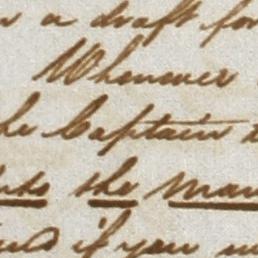 a draft for
Whenever
he Captain
the man
if you